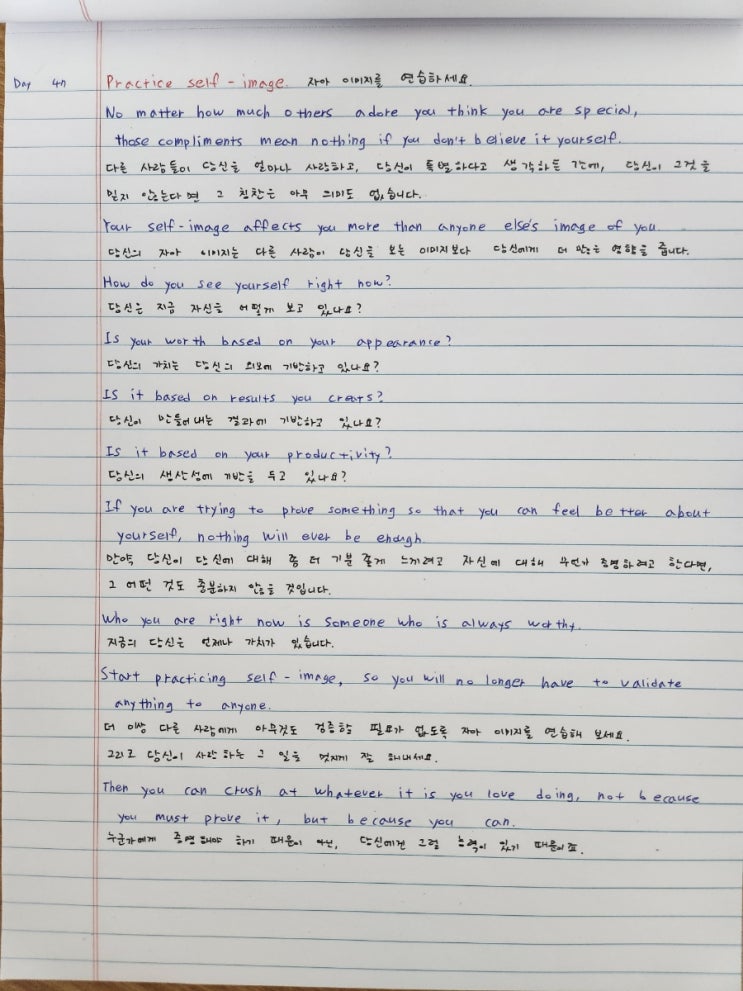 Day 47 Practice self-image. 자아 이미지를 연습하세요.
No matter how much others adore you think you are special,
those compliments mean nothing if you don't believe it yourself.
다른 사람들이 당신을 얼마나 사랑하고, 당신이 특별하다고 생각하든 간에, 당신이 그것을
믿지 않는다면 그 칭찬은 아무 의미도 없습니다.
Your self-image affects you more than anyone else's image of you.
당신의 자아 이미지는 다른 사람이 당신을 보는 이미지보다 당신에게 더 많은 영향을 줍니다.
How do you see yourself right now?
당신은 지금 자신을 어떻게 보고 있나요?
Is your worth based on your appearance?
당신의 가치는 당신의 외모에 기반하고 있나요?
Is it based on results you creats?
당신이 만들어내는 결과에 기반하고 있나요?
Is it based on your productivity?
당신의 생산성에 기반을 두고 있나요?
If you are trying to prove something so that you can feel better about
yourself, nothing will ever be enough.
만약 당신이 당신에 대해 좀 더 기분 좋게 느끼려고 자신에 대해 무언가 증명하려고 한다면,
그 어떤 것도 충분하지 않을 것입니다.
Who you are right now is someone who is always worthy.
지금의 당신은 언제나 가치가 있습니다.
Start practicing self-image, so you will no longer have to validate
anything to anyone.
더 이상 다른 사람에게 아무것도 검증할 필요가 없도록 자아 이미지를 연습해 보세요.
그리고 당신이 사랑하는 그 일을 멋지게 잘 해내세요.
Then you can crush at whatever it is you love doing, not because
you must prove it, but because you can.
누군가에게 증명해야 하기 때문이 아닌, 당신에겐 그럴 능력이 있기 때문이죠.